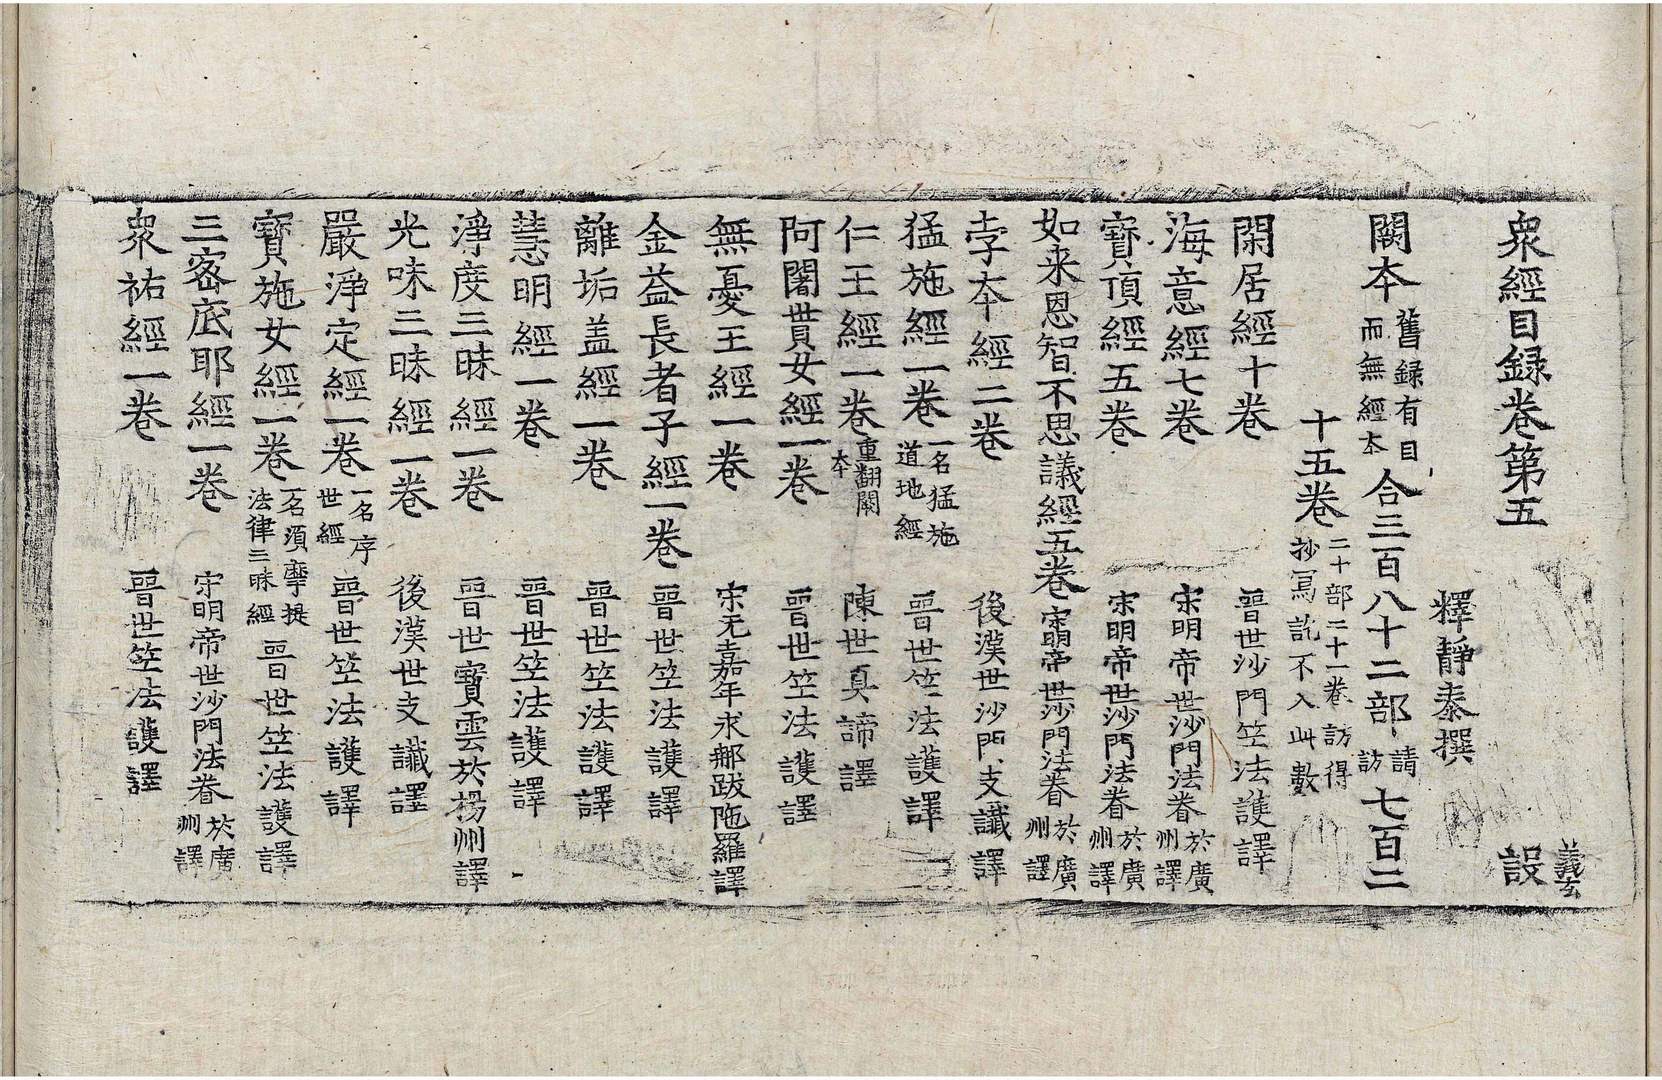 衆經目録卷第五 設 義玄
釋靜泰撰
闕本 舊録有目而無經本 合三百八十二部 請訪 七百二
十五卷 二十部二十一卷訪得抄寫訖不入此數
閑居經十卷 晉世沙門竺法護譯
海意經七卷 宋明帝世沙門法眷 於廣州譯
寶頂經五卷 宋明帝世沙門法眷 於廣州譯
如来恩智不思議經五卷 宋明帝世沙門法眷 於廣州譯
孛夲經二卷 後漢世沙門支讖譯
猛施經一卷 一名猛施道地經 晉世竺法護譯
仁王經一卷 重翻闕夲 陳世真諦譯
阿闍貰女經一卷 晉世竺法護譯
無憂王經一卷 宋元嘉年求那跋陁羅譯
金益長者子經一卷 晉世竺法護譯
離垢盖經一卷 晉世竺法護譯
慧明經一卷 晉世竺法護譯
淨度三昧經一卷 晉世寶雲於楊州譯
光味三昧經一卷 後漢世支讖譯
嚴淨定經一卷 一名序世經 晉世竺法護譯
寶施女經一卷 一名須摩提法律三昧經 晉世竺法護譯
三密底耶經一卷 宋明帝世沙門法眷 於廣州譯
衆祐經一卷 晉世竺法護譯